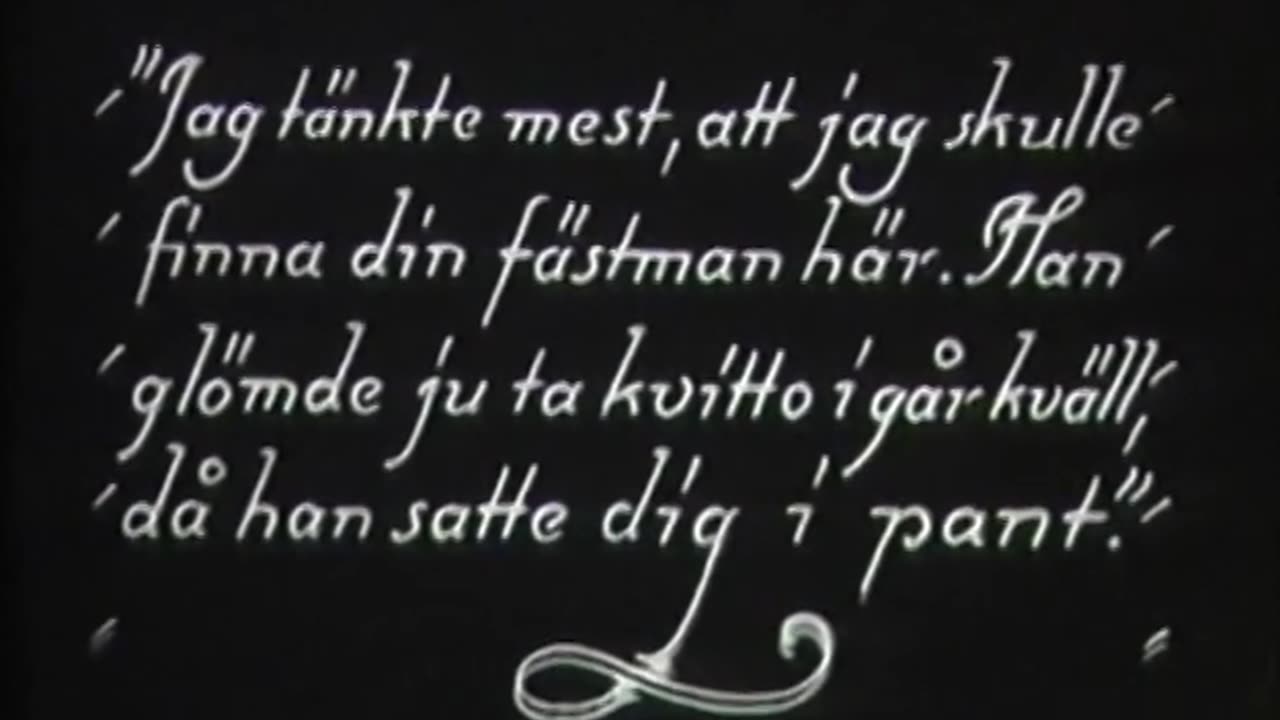 "Jag tänkte mest, att jag skulle
finna din fästman här. Han
glömde ju ta kvitto i går kväll,
då han satte dig i pant."